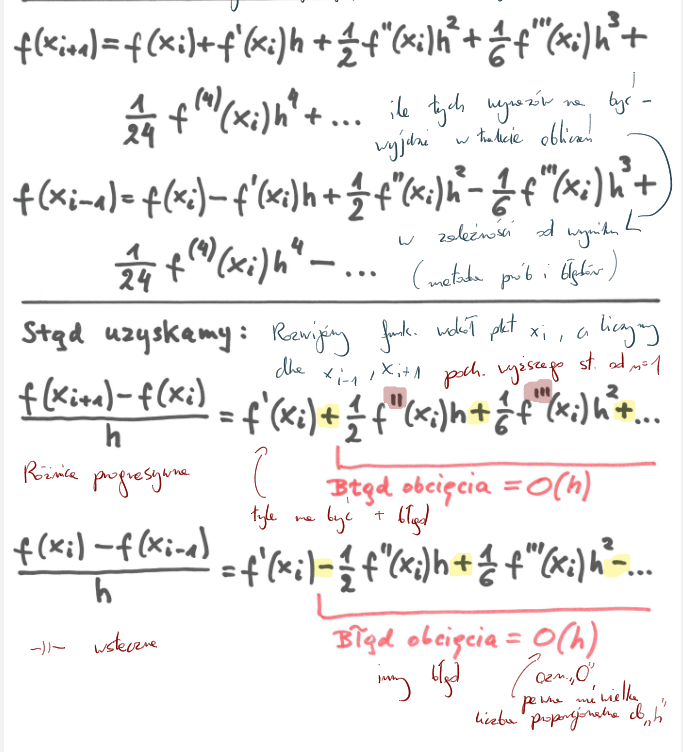 f(xᵢ₊₁) = f(xᵢ) + f'(xᵢ)h + 1/2 f''(xᵢ)h² + 1/6 f'''(xᵢ)h³ +
1/24 f⁽⁴⁾(xᵢ)h⁴ + ... ile tych wyrazów ma być -
wyjdzie w trakcie obliczeń
f(xᵢ₋₁) = f(xᵢ) - f'(xᵢ)h + 1/2 f''(xᵢ)h² - 1/6 f'''(xᵢ)h³ +
w zależności od wyniku
1/24 f⁽⁴⁾(xᵢ)h⁴ - ... (metoda prób i błędów)
Stąd uzyskamy: Rozwijamy funk. wokół pkt xᵢ, a liczymy
dla xᵢ₋₁, xᵢ₊₁ poch. wyższego st. od n=1
(f(xᵢ₊₁) - f(xᵢ))/h = f'(xᵢ) + 1/2 f''(xᵢ)h + 1/6 f'''(xᵢ)h² + ...
Różnica progresywna
Błąd obcięcia = O(h)
tyle ma być + błąd
(f(xᵢ) - f(xᵢ₋₁))/h = f'(xᵢ) - 1/2 f''(xᵢ)h + 1/6 f'''(xᵢ)h² - ...
Błąd obcięcia = O(h)
-||- wsteczna
inny błąd
ozn. „O”,
pewna niewielka
liczba proporcjonalna do „h”